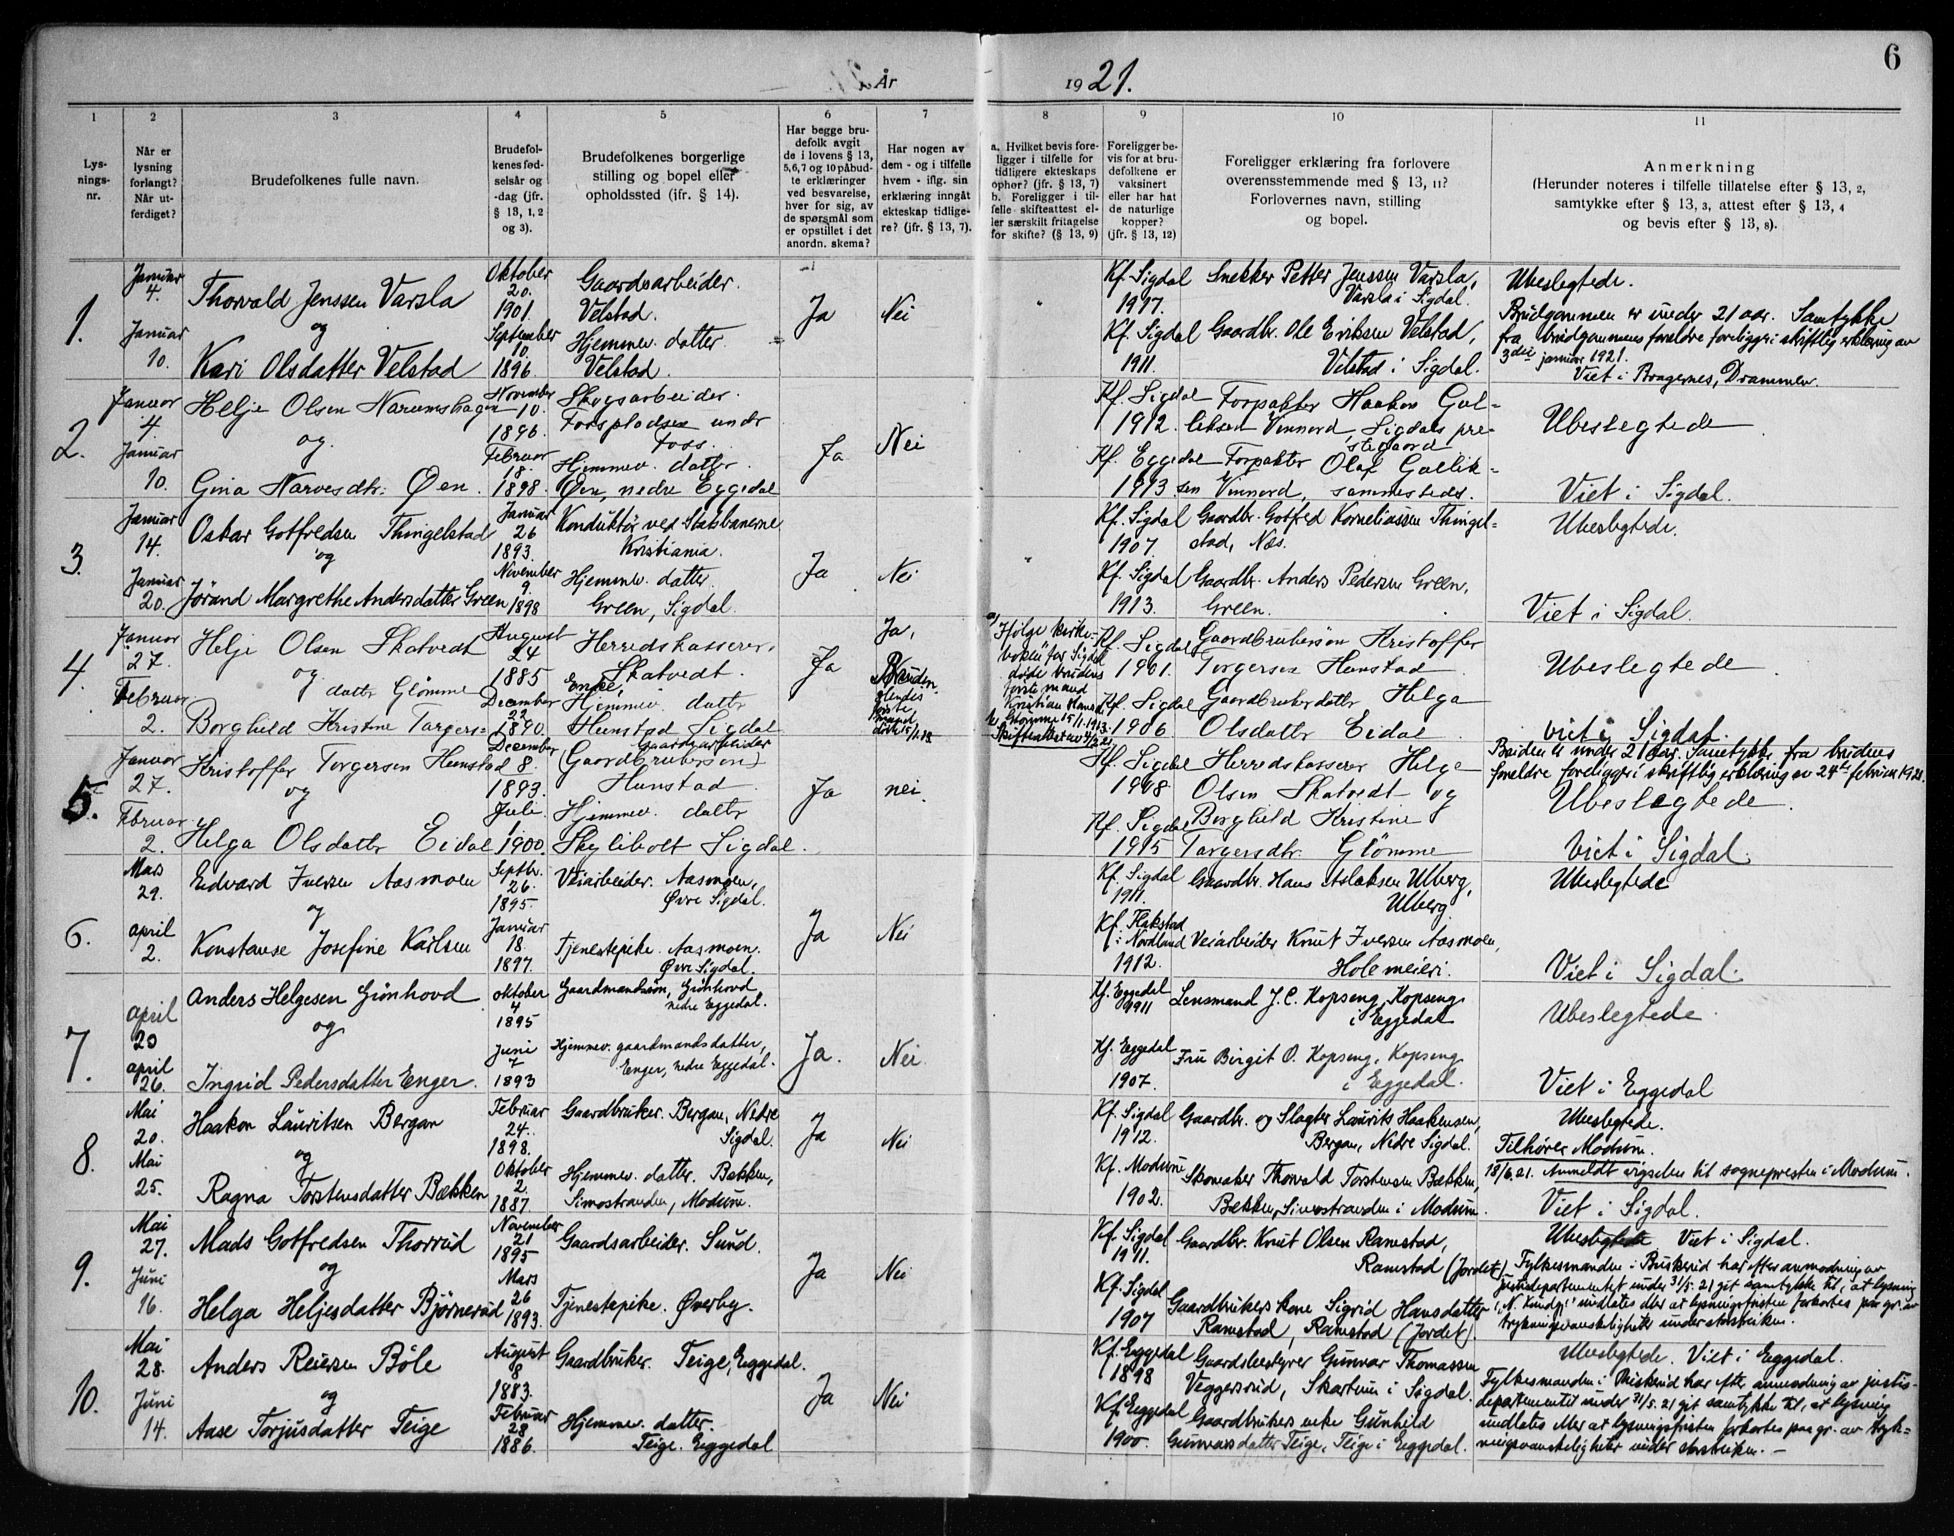 År
1921.
6
1
2
3
4
5
6
7
8
9
10
11
Lys-
nings-
nr.
Når er
lysning
forlangt?
Når ut-
ferdiget?
Brudefolkenes fulle navn.
Brudefol-
kenes fød-
selsår og
-dag (jfr.
§ 13, 1, 2
og 3).
Brudefolkenes borgerlige
stilling og bopel eller
opholdssted (ifr. § 14).
Har begge bru-
defolk avgit
de i lovens § 13,
5,6,7 og 10 påbud-
te erklæringer
ved besvarelse,
hver for sig, av
de spørsmål som
er opstillet i det
anordn. skema?
Har nogen av
dem - og i tilfelle
hvem - iflg. sin
erklæring inngått
ekteskap tidlige-
re? (jfr. § 13, 7).
a. Hvilket bevis fore-
ligger i tilfelle for
tidligere ekteskaps
ophør? (jfr. § 13, 7)
b. Foreligger i til-
felle skifteattest el-
ler særskilt fritagelse
for skifte? (§ 13, 9)
Foreligger be-
vis for at bru-
defolkene er
vaksinert
eller har hat
de naturlige
kopper?
(jfr. § 13, 12)
Foreligger erklæring fra forlovere
overensstemmende med § 13, 11?
Forlovernes navn, stilling
og bopel.
Anmerkning
(Herunder noteres i tilfelle tillatelse efter § 13, 2,
samtykke efter § 13, 3, attest efter § 13, 4
og bevis efter § 13, 8).
1.
Januar
4.
Januar
10.
Thorvald Jenssen Varsla
og
Kari Olsdatter Velstad
Oktober
20.
1901.
September
10.
1896.
Gaardsarbeider.
Velstad.
Hjemmev. datter.
Velstad.
Ja
Nei
Kf. Sigdal
1917.
Kf. Sigdal
1911.
Snekker Petter Jenssen Varsla,
Varsla i Sigdal.
Gaardbr. Ole Eriksen Velstad,
Velstad i Sigdal.
Ubeslegtede.
Brudgommen er under 21 aar. Samtykke
fra brudgommens foreldre foreligger i skriftlig erklæring av
3die januar 1921.
Viet i Bragernes, Drammen.
2.
Januar
4
Januar
10.
Helje Olsen Narumshagen
og
Gina Narvesdtr. Øen.
November
10.
1896.
Februar
18.
1898.
Skogsarbeider.
Fosspladsen undr
Foss.
Hjemmev. datter.
Øen, nedre Eggedal
Ja
Nei
Kf. Sigdal
1912.
Kf. Eggedal
1913
Forpakter Haakon Gul-
liksen Vinnord, Sigdals pre-
stegaard
Forpakter Olaf Gullik-
sen Vinnord, sammesteds.
Ubeslegtede
Viet i Sigdal.
3.
Januar
14.
Januar
20.
Oskar Gotfredsen Thingelstad
og
Jørand Margrethe Andersdatter Green
Januar
26
1893.
November
9.
1898
Konduktør ved Statsbanerne
Kristiania.
Hjemmev. datter.
Green, Sigdal.
Ja
Nei
Kf. Sigdal
1907.
Kf. Sigdal
1913.
Gaardbr. Gotfred Korneliussen Thingel-
stad, Næs.
Gaardbr. Anders Pedersen Green,
Green.
Ubeslegtede.
Viet i Sigdal.
4.
Januar
27.
Februar
2.
Helje Olsen Skatvedt
og
datter Glømme
Borghild Kristine Torgers=
August
24
1885
December
22
1890.
Herredskasserer.
Skatvedt.
Enke,
Hjemmev. dattr
Hunstad Sigdal
Ja
Ja,
Bruden.
første
mand
døde 15/1.13.
a) Ifølge kirke-
boken for Sigdal
døde brudens
første mand
Kristian Hansen
Glømme 15/1.1913.
b) Skifteattest av 4/2 21
Kf. Sigdal
1901.
Kf. Sigdal
1906
Gaardbrukersøn Kristoffer
Torgersen Hunstad
Gaardbrukerdatter Helga
Olsdatter Eidal
Ubeslegtede
Viet i Sigdal.
5.
Januar
27.
Februar
2.
Kristoffer Torgersen Hunstad
og
Helga Olsdattr Eidal
December
8.
1893.
Juli
1.
1900.
Gaardsarbeider
(Gaardbrukersøn)
Hunstad.
Hjemmev. dattr
Skylibolt Sigdal.
Ja
nei.
Kf. Sigdal
1908
Kf. Sigdal
1915
Herredskasserer Helge
Olsen Skatvedt og
Borghild Kristine
Torgersdtr. Glømme
Bruden er under 21 aar. Samtykke fra brudens
foreldre foreligger i skriftlig erklæring av 24de februar 1921.
Ubeslegtede.
Viet i Sigdal.
6.
Mars
29.
april
2.
Edvard Iversen Aasmoen
og
Konstanse Josefine Karlsen
Septbr.
26.
1895.
Januar
18.
1897.
Veiarbeider. Aasmoen,
Øvre Sigdal.
Tjenestepike. Aasmoen.
Øvre Sigdal.
Ja
Nei
Kf. Sigdal
1911.
Kf. Flakstad
i Nordland
1912.
Gaardbr. Hans Aslaksen Ulberg,
Ulberg.
Veiarbeider Knut Iversen Aasmoen,
Hole meieri.
Ubeslegtede
Viet i Sigdal.
7.
april
20
april
26.
Anders Helgesen Grønhovd
og
Ingrid Pedersdatter Enger.
oktober
4
1895
Juni
7
1893
Gaardmandssøn, Grønhovd
nedre Eggedal.
Hjemmev. gaardmandsdatter,
Enger, nedre Eggedal.
Ja.
Nei.
Kf. Eggedal
1911
Kf. Eggedal
1907.
Lensmand J. C. Kopseng, Kopseng
i Eggedal
Fru Birgit O. Kopseng, Kopseng
i Eggedal.
Ubeslegtede
Viet i Eggedal
8.
Mai
20.
Mai
25.
Haakon Lauritsen Bergan
og
Ragna Torstensdatter Bækken
Februar
24.
1898.
Oktober
2.
1887.
Gaardbruker. Bergan, Nedre
Sigdal.
Hjemmev. datter. Bækken,
Simostranden, Modum.
Ja
Nei
Kf. Sigdal
1912.
Kf. Modum
1902.
Gaardbr. og Slagter Laurits Haakensen,
Bergan, Nedre Sigdal.
Skomaker Thorvald Torstensen Bækken,
Bækken, Simostranden i Modum.
Ubeslegtede.
Tilhører Modum.
18/6.21. Anmeldt vigselen til sognepresten i Modum.
Viet i Sigdal.
9.
Mai
27.
Juni
16.
Mads Gotfredsen Thorrud
og
Helga Heljesdatter Bjørnerud
November
21
1895
Mars
26
1893.
Gaardsarbeider. Sund.
Tjenestepike. Øverby.
Ja
Nei
Kf. Sigdal
1911.
Kf. Sigdal
1907
Gaardbr. Knut Olsen Ramstad,
Ramstad (Jordet)
Gaardbrukers kone Sigrid Hansdatter
Ramstad, Ramstad (Jordet)
Ubeslegtede Viet i Sigdal.
Fylkesmanden i Buskerud har efter anmodning av
justisdepartementet under 31/5.21 git samtykke til, at lysning
i „N. Kundgj." undlates eller at lysningsfristen forkortes paa gr. av
trykningsvanskeligheter under storstreiken.
10.
Mai
28.
Juni
14.
Anders Reiersen Bøle
og
Aase Torjusdatter Teige
August
8
1883.
Februar
28
1886.
Gaardbruker. Teige, Eggedal.
Hjemmev. datter.
Teige. Eggedal
Ja
Nei
Kf. Eggedal
1898
Kf. Eggedal
1900.
Gaardsbestyrer Gunvar Thomassen
Veggersrud, Skartum i Sigdal.
Gaardbrukers enke Gunhild
Gunvarsdatter Teige, Teige i Eggedal.
Ubeslegtede. Viet i Eggedal.
Fylkesmanden i Buskerud har efter anmodning av justis-
departementet under 31/5.21 git samtykke til, at lysning
undlates eller at lysningsfristen forkortes paa gr. av tryk-
ningsvanskeligheter under storstreiken. –